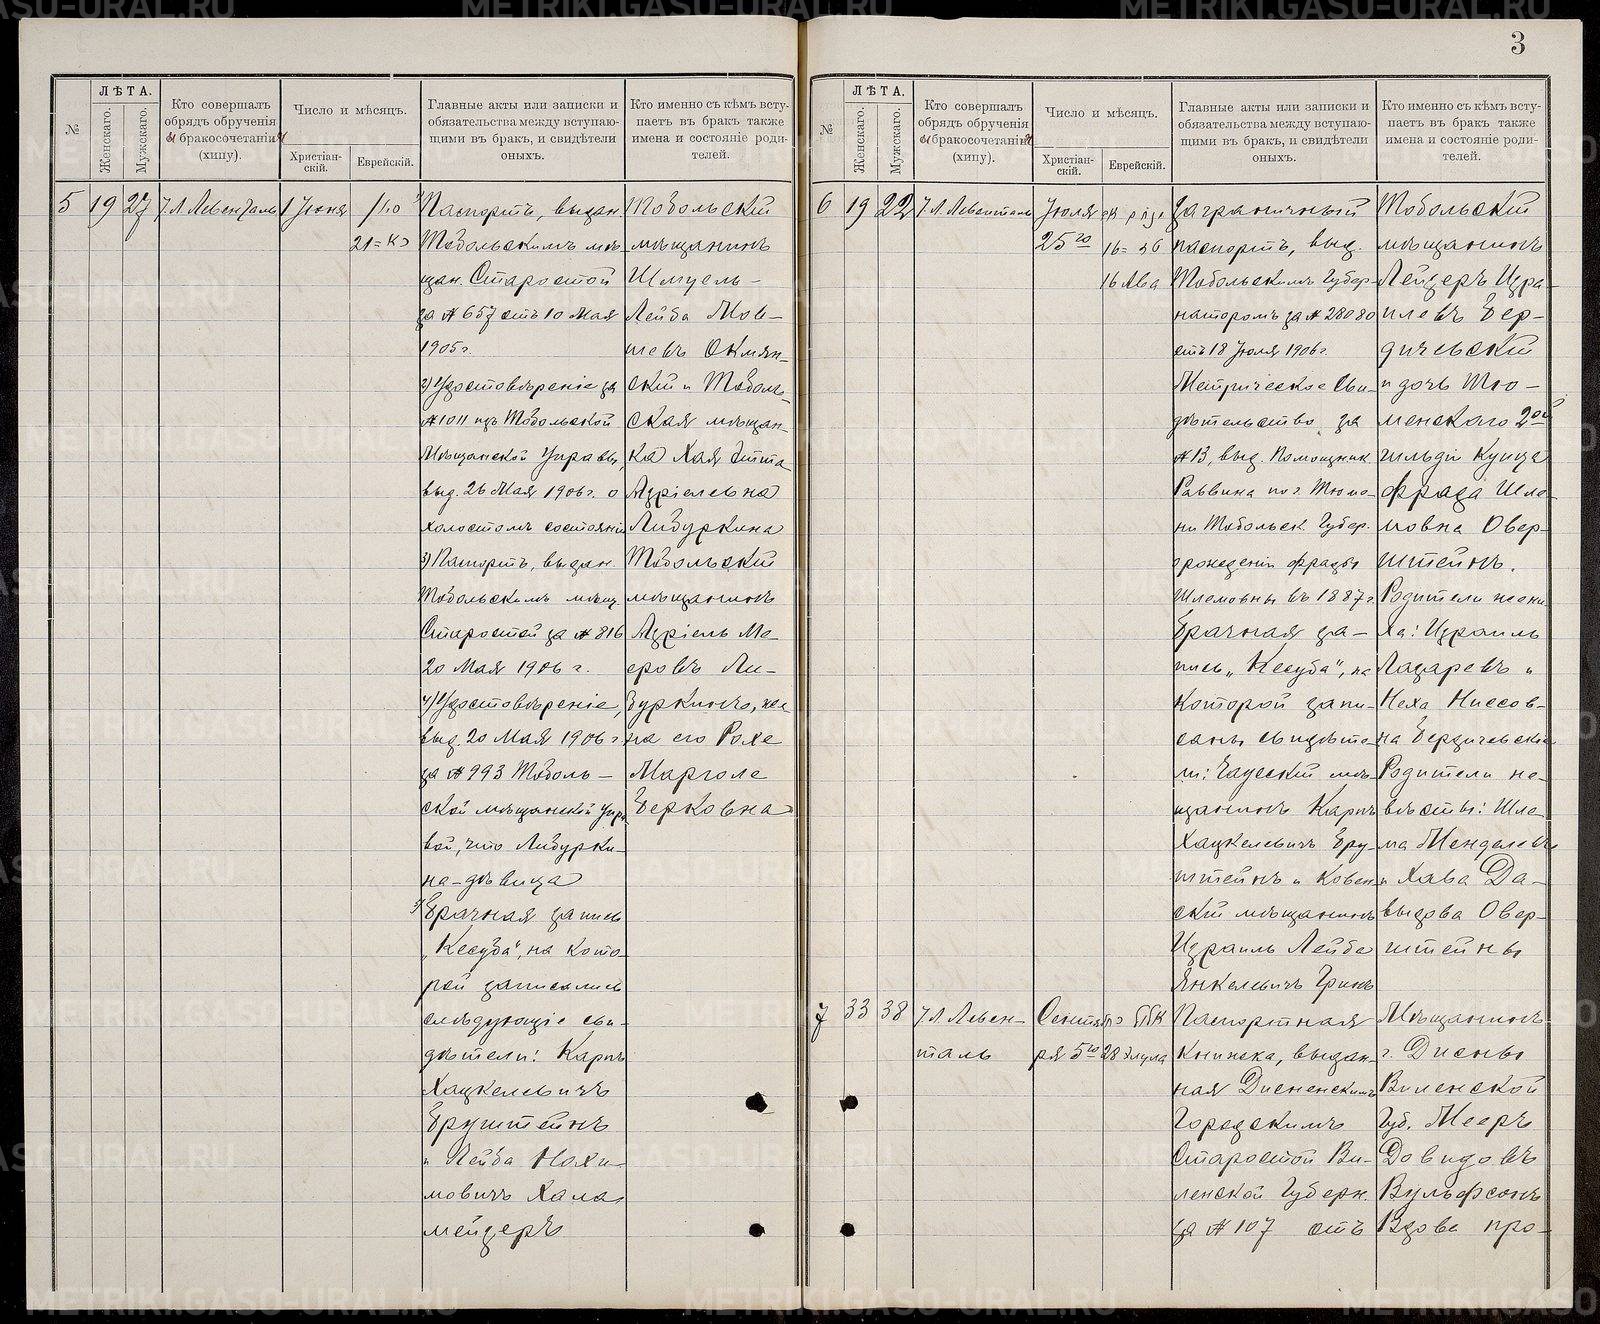 3
№
ЛѢТА.
Женскаго.
Мужскаго.
Кто совершалъ
обрядъ обрученія
и бракосочетанія
(хипу).
Число и мѣсяцъ.
Христіан-
скій.
Еврейскій.
Главные акты или записки и
обязательства между вступаю-
щими въ бракъ, и свидѣтели
оныхъ.
Кто именно съ кѣмъ всту-
паетъ въ бракъ также
имена и состояніе роди-
телей.
5
19
27
Левенталь
1 Июня
21
Паспортъ, выдан
Тобольскимъ мѣ-
щан. Старостой
за № 657 отъ 10 Мая
1905 г.
2) Удостовѣреніе за
№ 1011 изъ Тобольской
Мѣщанской Управы,
выд. 26 Мая 1906 г. о
холостомъ состояніи
3) Паспортъ, выдан.
Тобольскимъ мѣщ.
Старостой за № 816
20 Мая 1906 г.
4) Удостовѣреніе,
выд. 20 Мая 1906 г.
за № 993 Тоболь-
ской мѣщанской Упра
вой, что Либурки-
на-дѣвица
5) Брачная запись
„Кесуба", на кото-
рой записались
слѣдующіе сви-
дѣтели: Карпъ
Хацкелевичъ
Брунштейнъ
и Лейба Нохи-
мовичъ
мейдеръ
Тобольскій
мѣщанинъ
Шмуель-
Лейба Мов-
шевъ Окмян-
скій и Тоболь-
ская мѣщан-
ка Хая Гитта
Азріелевна
Либуркина
Тобольскій
мѣщанинъ
Азріель Ме
еровъ Ли-
буркинъ, же
на его Рохе
Марголе
Берковна
№
ЛѢТА.
Женскаго.
Мужскаго.
Кто совершалъ
обрядъ обрученія
и бракосочетанія
(хипу).
Число и мѣсяцъ.
Христіан-
скій.
Еврейскій.
Главные акты или записки и
обязательства между вступаю-
щими въ бракъ, и свидѣтели
оныхъ.
Кто именно съ кѣмъ всту-
паетъ въ бракъ также
имена и состояніе роди-
телей.
6
19
22
Левенталь
Июля
25го
16 Ава
Заграничный
паспортъ, выд.
Тобольскимъ Губер-
наторомъ за № 28080
отъ 18 Июля 1906 г.
Метрическое Сви-
дѣтельство за
№ 13, выд. Помощник.
Раввина по г. Тюме-
ни Тобольск. Губер.
о рожденіи Фрады
Шлемовны въ 1887 г.
Брачная за-
пись „Кесуба", на
которой запи-
саны свидѣте-
ли: Чаусскій мѣ-
щанинъ Карпъ
Хацкелевичъ Бру-
нштейнъ и Ковен-
скій мѣщанинъ
Израиль Лейба
Янкелевичъ Гринъ
Тобольскій
мѣщанинъ
Лейзеръ Изра-
илевъ Бер-
дичевскій
и дочь Тю-
менскаго 2ой
гильдіи Купца
Фрада Шле-
мовна Овер-
штейнъ.
Родители жени
ха: Израиль
Лазаревъ и
Неха Ниссов-
на Бердичевскіе
Родители не-
вѣсты: Шле-
ма Менделевъ
и Хава Да-
выдова Овер-
штейны
7
33
38
Левен-
таль
Сентяб
ря 5го
28 Элула
Паспортная
книжка, выдан-
ная Дисненскимъ
Городскимъ
Старостой Ви-
ленской Губерн.
за № 107 отъ
Мѣщанинъ
г. Дисны
Виленской
Губ. Мееръ
Довидовъ
Вульфсонъ
Вдова про-
METRIKI.GASO-URAL.RU